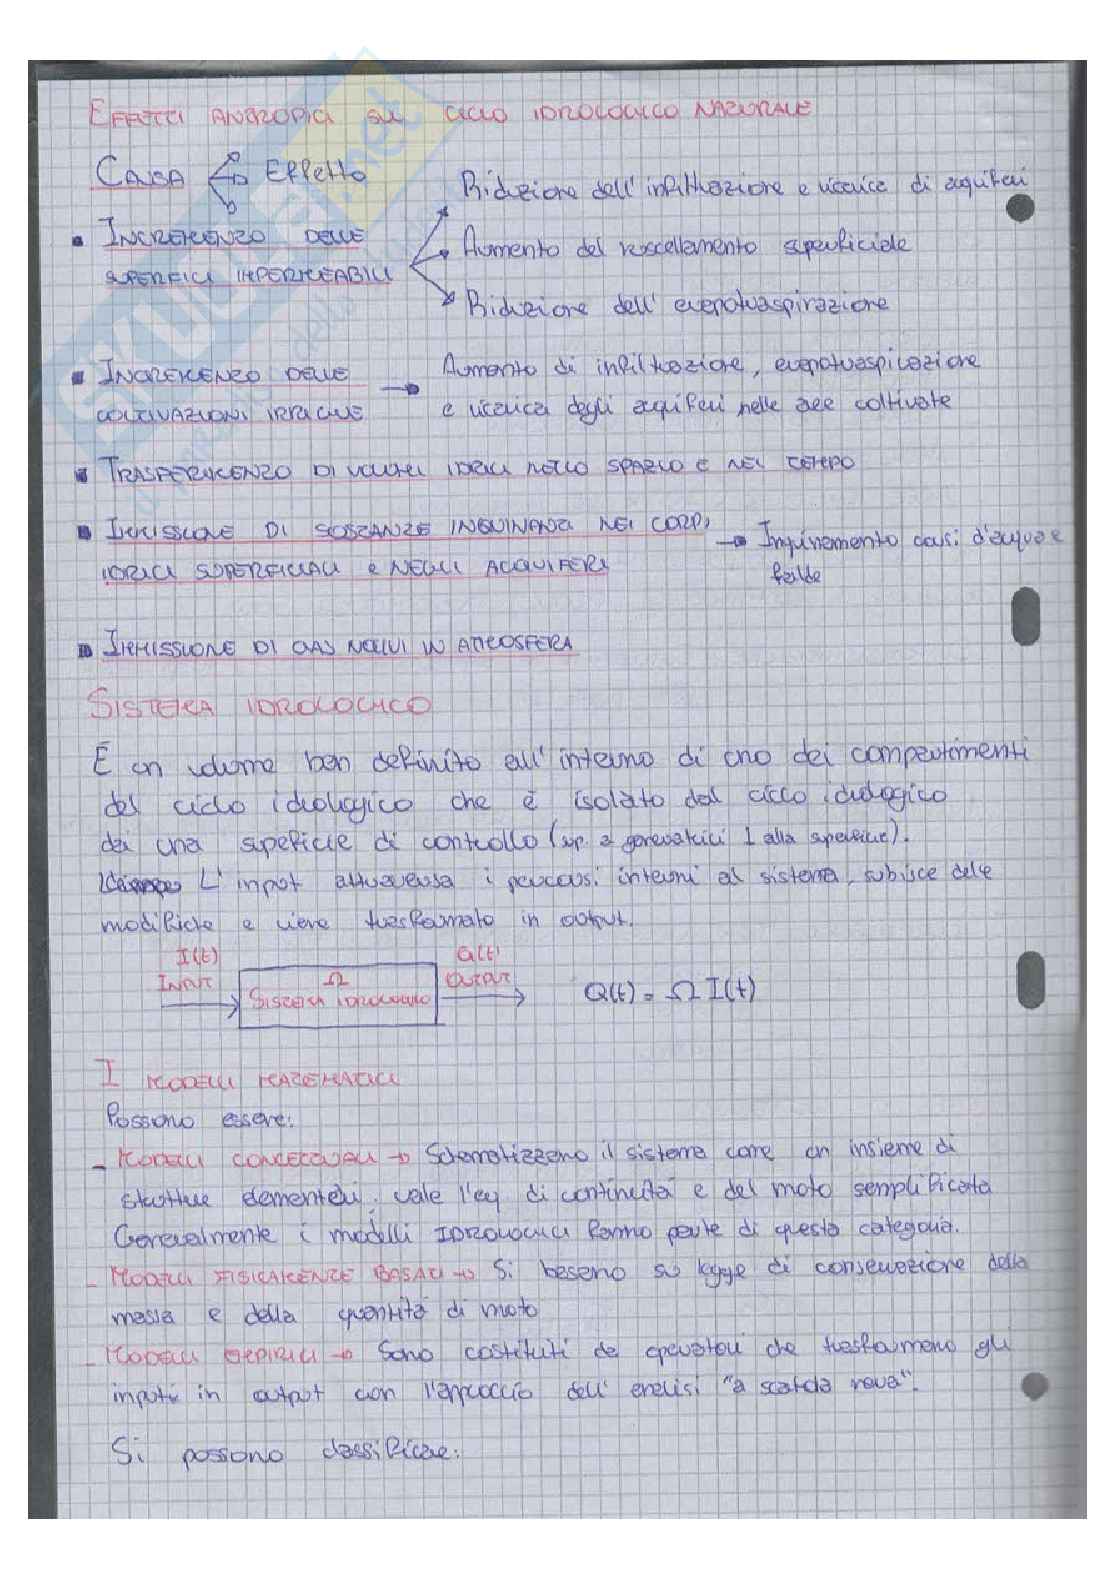 EFFETTI ANTROPICI SUL CICLO IDROLOGICO NATURALE
CAUSA Effetto
Riduzione dell'infiltrazione e ricarica di acquiferi
▪ INCREMENTO DELLE
SUPERFICI IMPERMEABILI
Aumento del ruscellamento superficiale
Riduzione dell'evapotraspirazione
▪ INCREMENTO DELLE
COLTIVAZIONI IRRIGUE
→ Aumento di infiltrazione, evapotraspirazione
e ricarica degli acquiferi nelle aree coltivate
▪ TRASFERIMENTO DI VOLUMI IDRICI NELLO SPAZIO E NEL TEMPO
▪ IMMISSIONE DI SOSTANZE INQUINANTI NEI CORPI
IDRICI SUPERFICIALI e NEGLI ACQUIFERI
→ Inquinamento corsi d'acqua e
falde
▪ IMMISSIONE DI GAS NOCIVI IN ATMOSFERA
SISTEMA IDROLOGICO
È un volume ben definito all'interno di uno dei compartimenti
del ciclo idrologico che è isolato dal ciclo idrologico
da una superficie di controllo (sup. a generatrici ⊥ alla superficie).
L'input attraversa i percorsi interni al sistema, subisce delle
modifiche e viene trasformato in output.
I(t)
INPUT
Ω
SISTEMA IDROLOGICO
Q(t)
OUTPUT
Q(t) = Ω I(t)
I MODELLI MATEMATICI
Possono essere:
- MODELLI CONCETTUALI → Schematizzano il sistema come un insieme di
strutture elementari; vale l'eq. di continuità e del moto semplificata
Generalmente i modelli IDROLOGICI fanno parte di questa categoria.
- MODELLI FISICAMENTE BASATI → Si basano su legge di conservazione della
massa e della quantità di moto
- MODELLI EMPIRICI → Sono costituiti da operatori che trasformano gli
inputi in output con l'approccio dell'analisi "a scatola nera".
Si possono classificare: